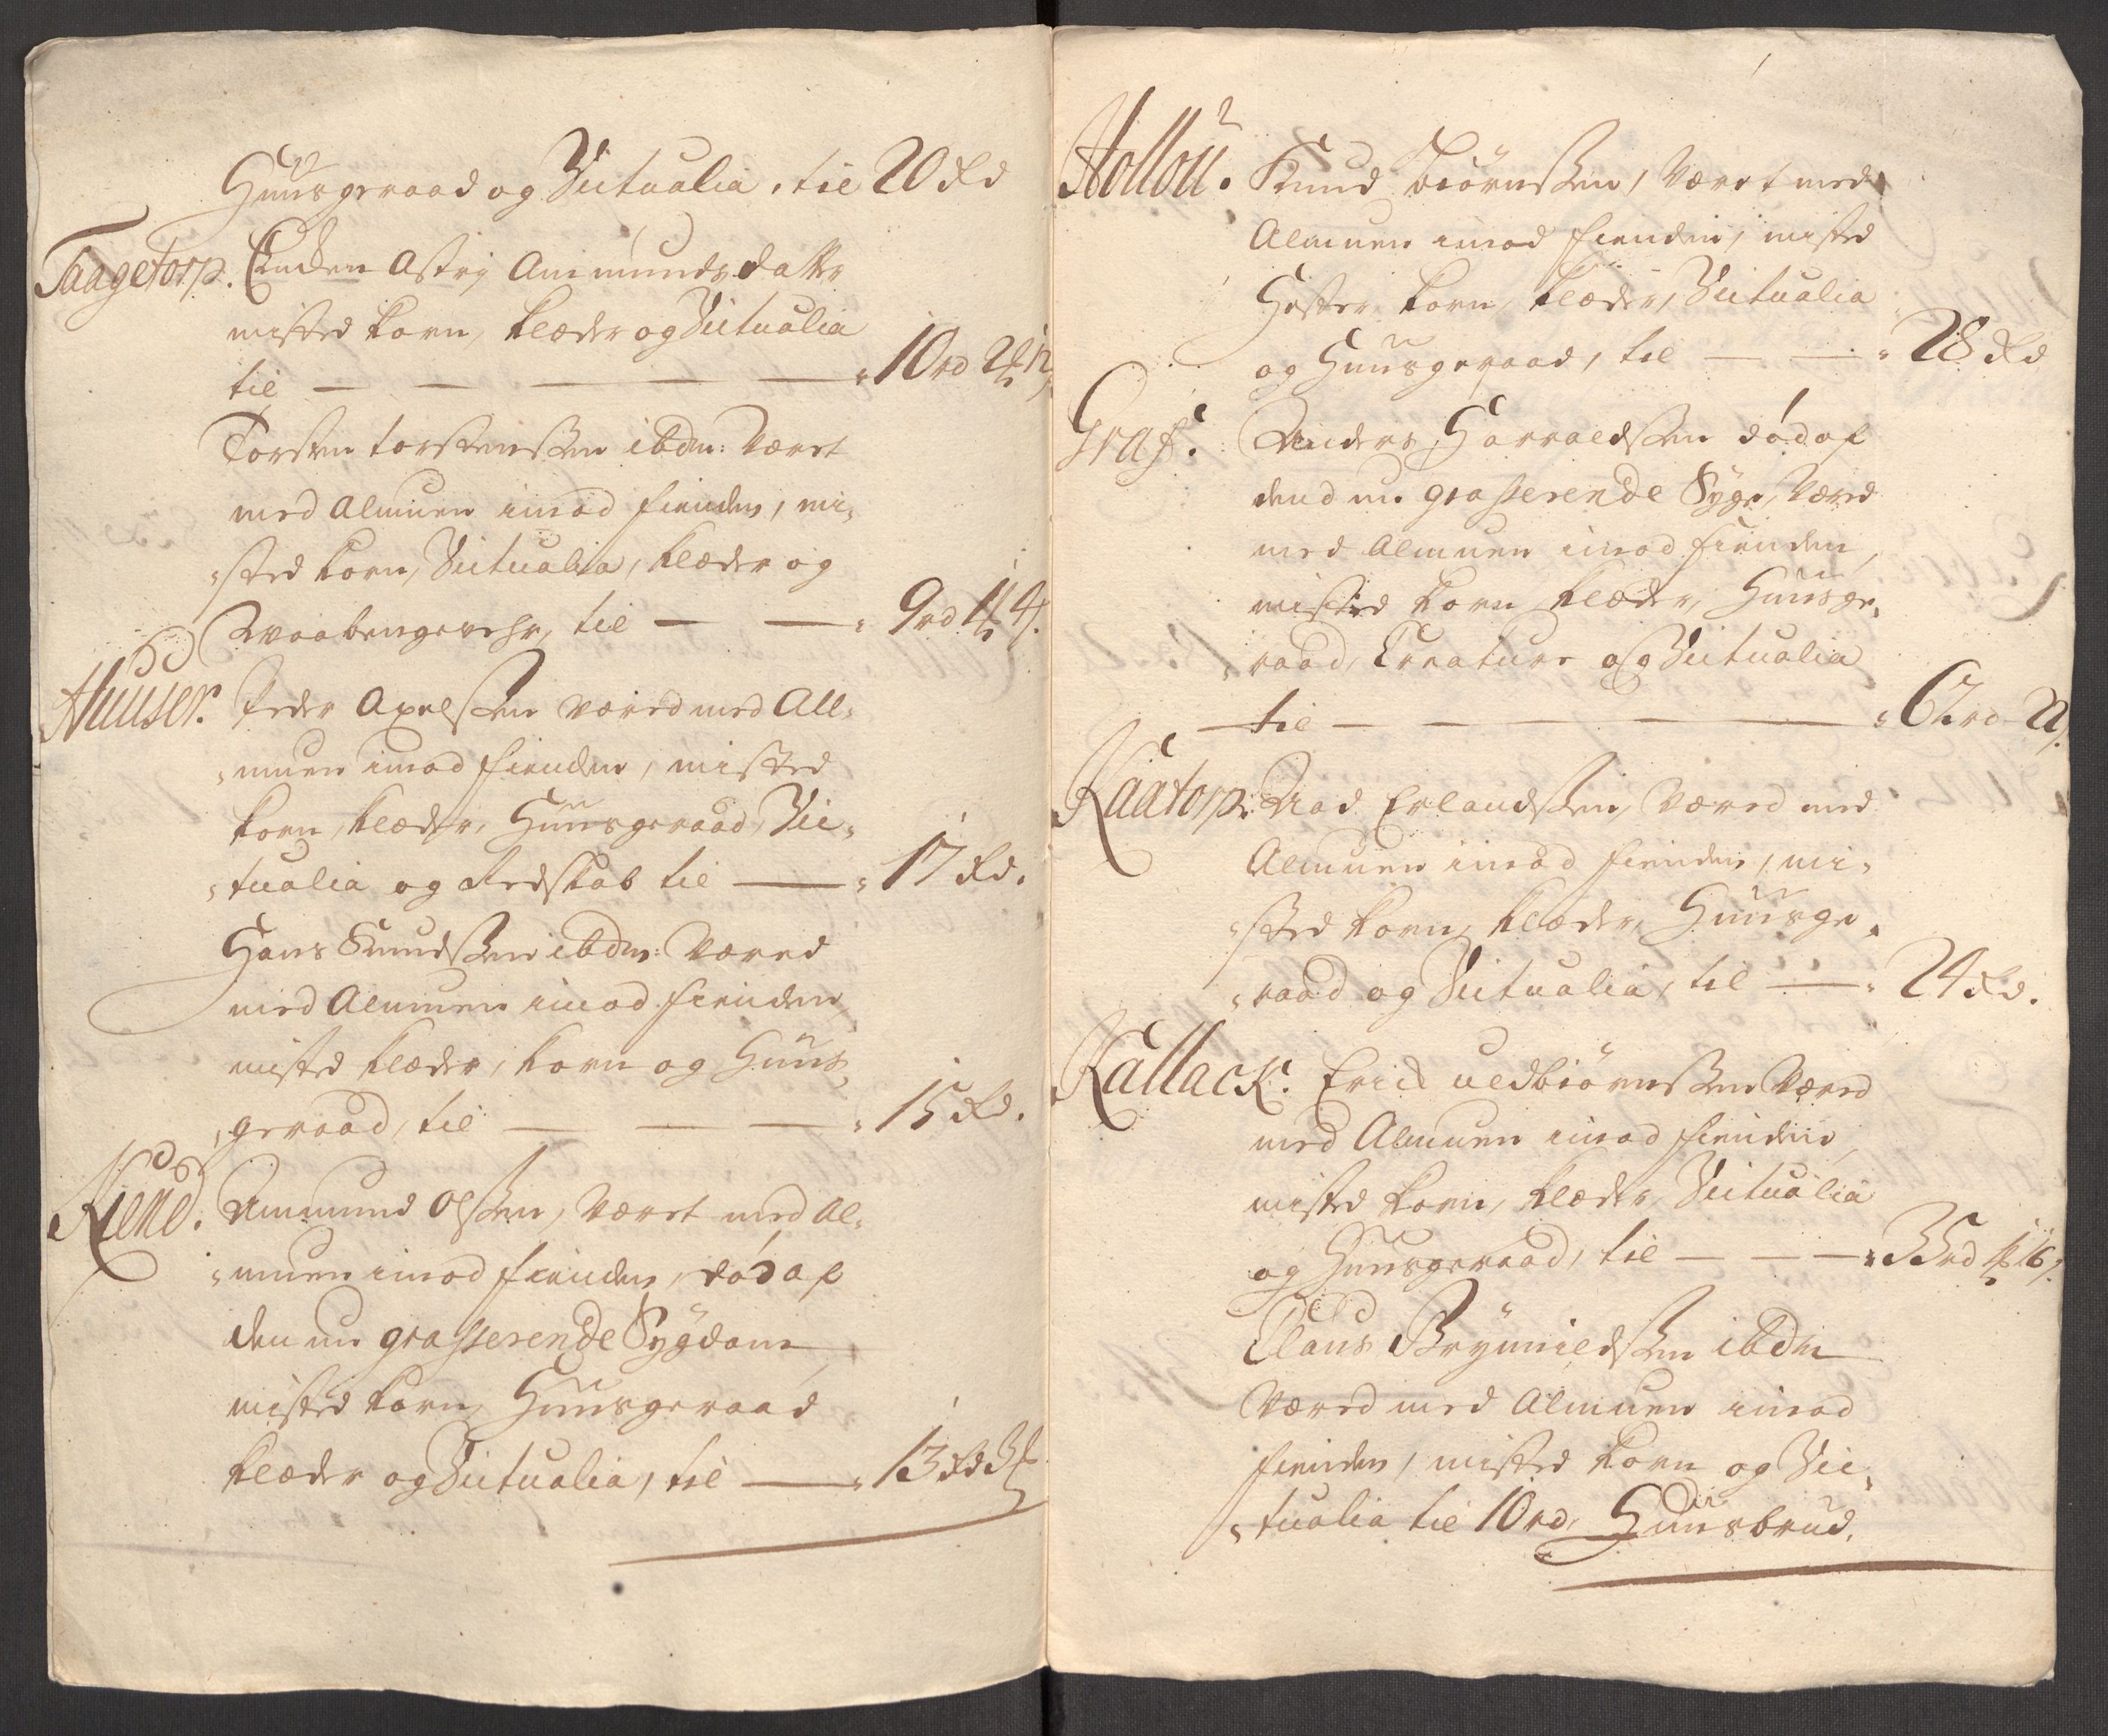 Huusgeraad og Victualia, til 20 Rd
Taagetorp. Encken Astrj Ammundsdatter
misted korn, klæder og Victualia
til — — — — — 10 rd 2 12
Torsten torstensen ibdm: Været
med Almuen imod fienden, mi-
sted korn, Victualia, klæder og
Waabengevehr, til — — 9 rd 1 4
Huuser. Peder Axelsen væred med All-
muen imod fienden, misted
korn, klæder, Huusgeraad, Vic-
tualia og Redskab til — 17 Rd.
Hans Knudsen ibdm: Væred
med Almuen imod fienden,
misted klæder, korn og Huus-
geraad, til — — — 15 Rd.
Kiend. Ammund Olsen, Været med Al-
muen imod fienden, död af
den nu grasserende Sygdom,
misted korn, Huusgeraad
klæder og Victualia, til — 13 Rd 3
Hollöü. Knud biörnsen, Været med
Almuen imod fienden, misted
Hester, korn, klæder, Victualia
og Huusgeraad, til — — 28 Rd
Graf. Anders Harraldsen död af
dend nu grasserende Syge, Væred
med Almuen imod fienden,
misted korn, klæder, Huusge-
raad, Creature og Victualia
til — — — — 62 rd 22
Kaatorp. Aad Erlandsen, Væred med
Almuen imod fienden, mi-
sted korn, klæder, Huusge-
raad og Victualia, til — 24 Rd.
Kallack. Erick uedbiörnsen Væred
med Almuen imod fienden,
misted korn, klæder, Victualia
og Huusgeraad, til — — — 35 rd 1 16
Claus Brynnildsen ibdm
Væred med Almuen imod
fienden, misted korn og Vic-
tualia til 10 rd, Huusbrud.